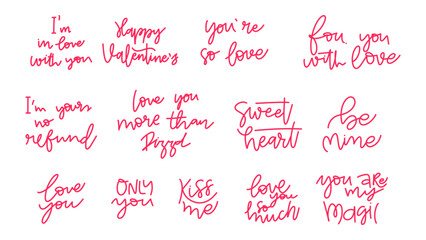 I'm
in love
with you
Happy
Valentine's
you're
so love
fou you
with love
I'm yours
no
refund
love you
more than
Pizzd
sweet
heart
be
mine
love
you
ONLY
you
Kiss
me
love
you
so
much
you are
my
Magic